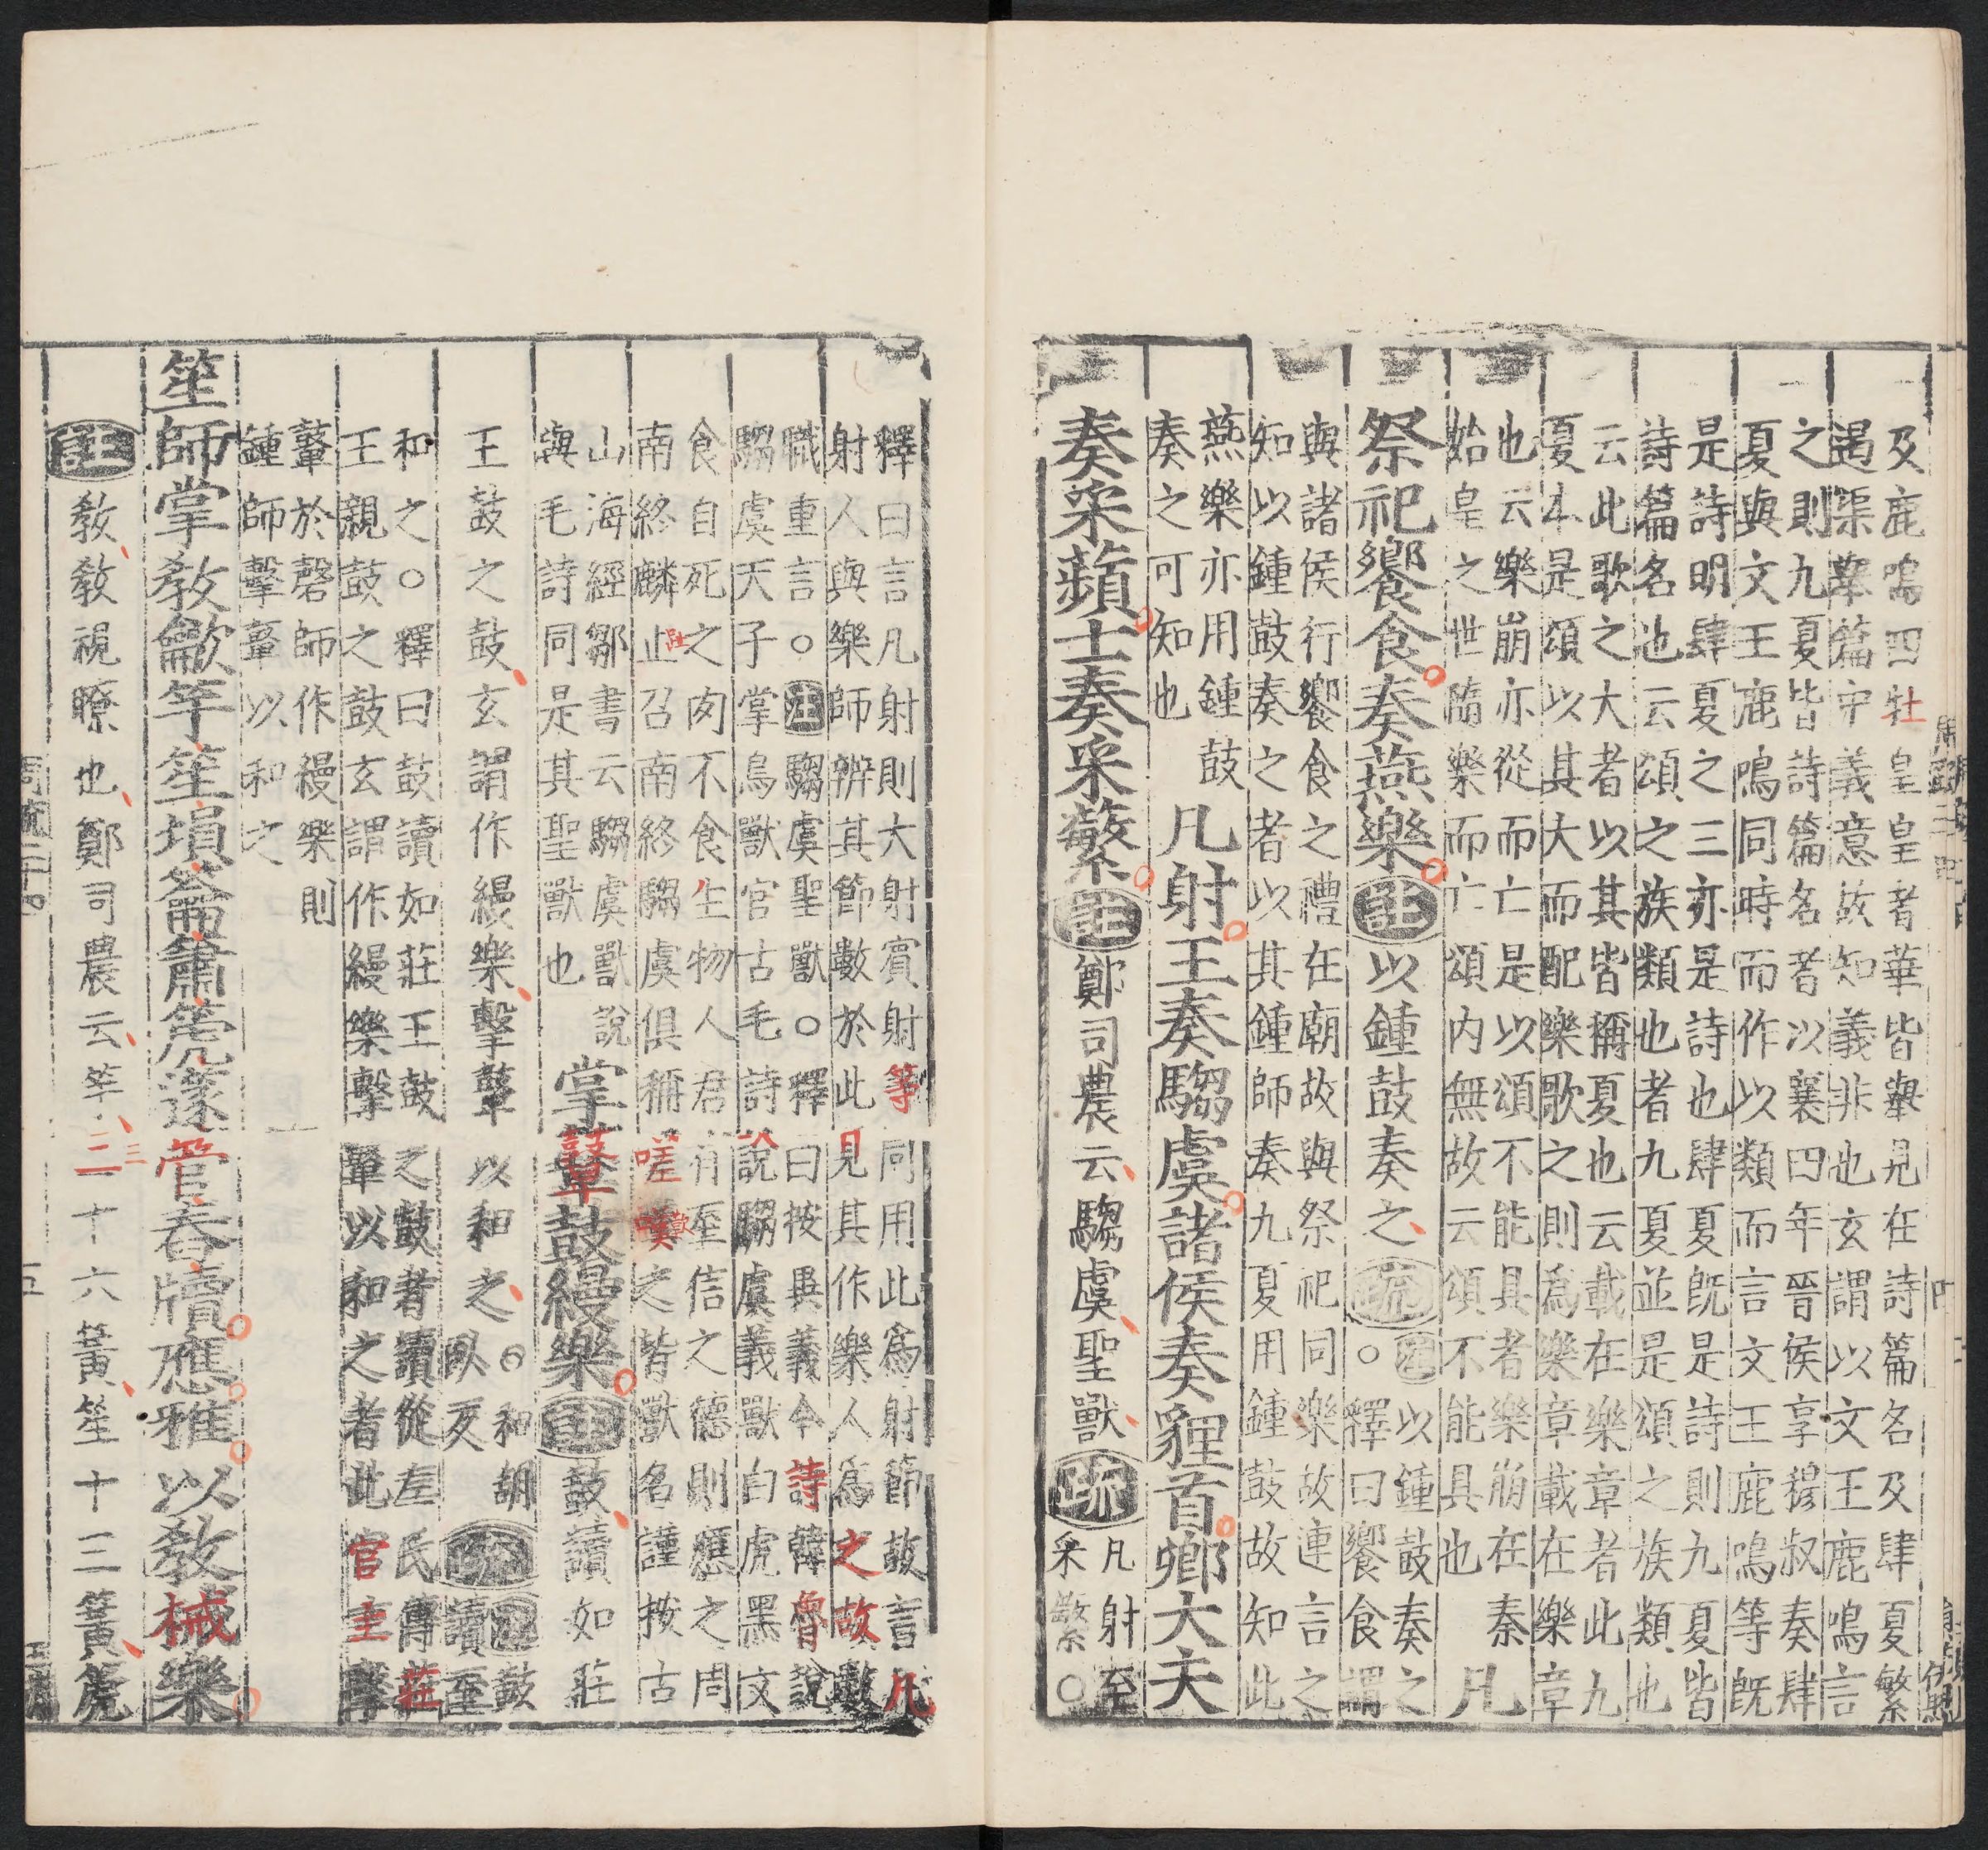 及鹿鳴四牡皇皇者華皆舉見在詩篇名及肆夏繁
遏渠舉篇中義意故知義非也玄謂以文王鹿鳴言
之則九夏皆詩篇名者以襄四年晉侯享穆叔奏肆
夏與文王鹿鳴同時而作以類而言文王鹿鳴等旣
是詩明肆夏之三亦是詩也肆夏旣是詩則九夏皆
詩篇名也云頌之族類也者九夏並是頌之族類也
云此歌之大者以其皆稱夏也云載在樂章者此九
夏本是頌以其大而配樂歌之則爲樂章載在樂章
也云樂崩亦從而亡是以頌不能具者樂崩在秦
始皇之世隨樂而亡頌內無故云頌不能具也
凡
祭祀饗食奏燕樂註以鍾鼓奏之疏
注以鍾鼓奏之
○釋曰饗食謂
與諸侯行饗食之禮在廟故與祭祀同樂故連言之
知以鍾鼓奏之者以其鍾師奏九夏用鍾鼓故知此
燕樂亦用鍾鼓
奏之可知也
凡射王奏騶虞諸侯奏貍首鄉大夫
奏采蘋士奏采蘩註鄭司農云騶虞聖獸疏
凡射至
采蘩○
釋曰言凡射則大射賓射等同用此爲射節故言凡
射人與樂師辨其節數於此見其作樂人爲之故數
職重言○注騶虞聖獸○釋曰按異義今詩韓魯說
騶虞天子掌鳥獸官古毛詩說騶虞義獸白虎黑文
食自死之肉不食生物人君有至信之德則應之周
南終麟止召南終騶虞俱稱嗟嘆之皆獸名謹按古
山海經鄒書云騶虞獸說
與毛詩同是其聖獸也
掌鼙鼓縵樂註鼓讀如莊
王鼓之鼓玄謂作縵樂擊鼙以和之
○和胡
臥反
疏
注鼓
讀至
和之○釋曰鼓讀如莊王鼓之鼓者讀從左氏傳莊
王親鼓之鼓玄謂作縵樂擊鼙以和之者此官主擊
鼙於磬師作縵樂則
鍾師擊鼙以和之
笙師掌敎龡竽笙塤籥簫篪篴管舂牘應雅以敎祴樂
註敎敎視瞭也鄭司農云竽三十六簧笙十三簧篪